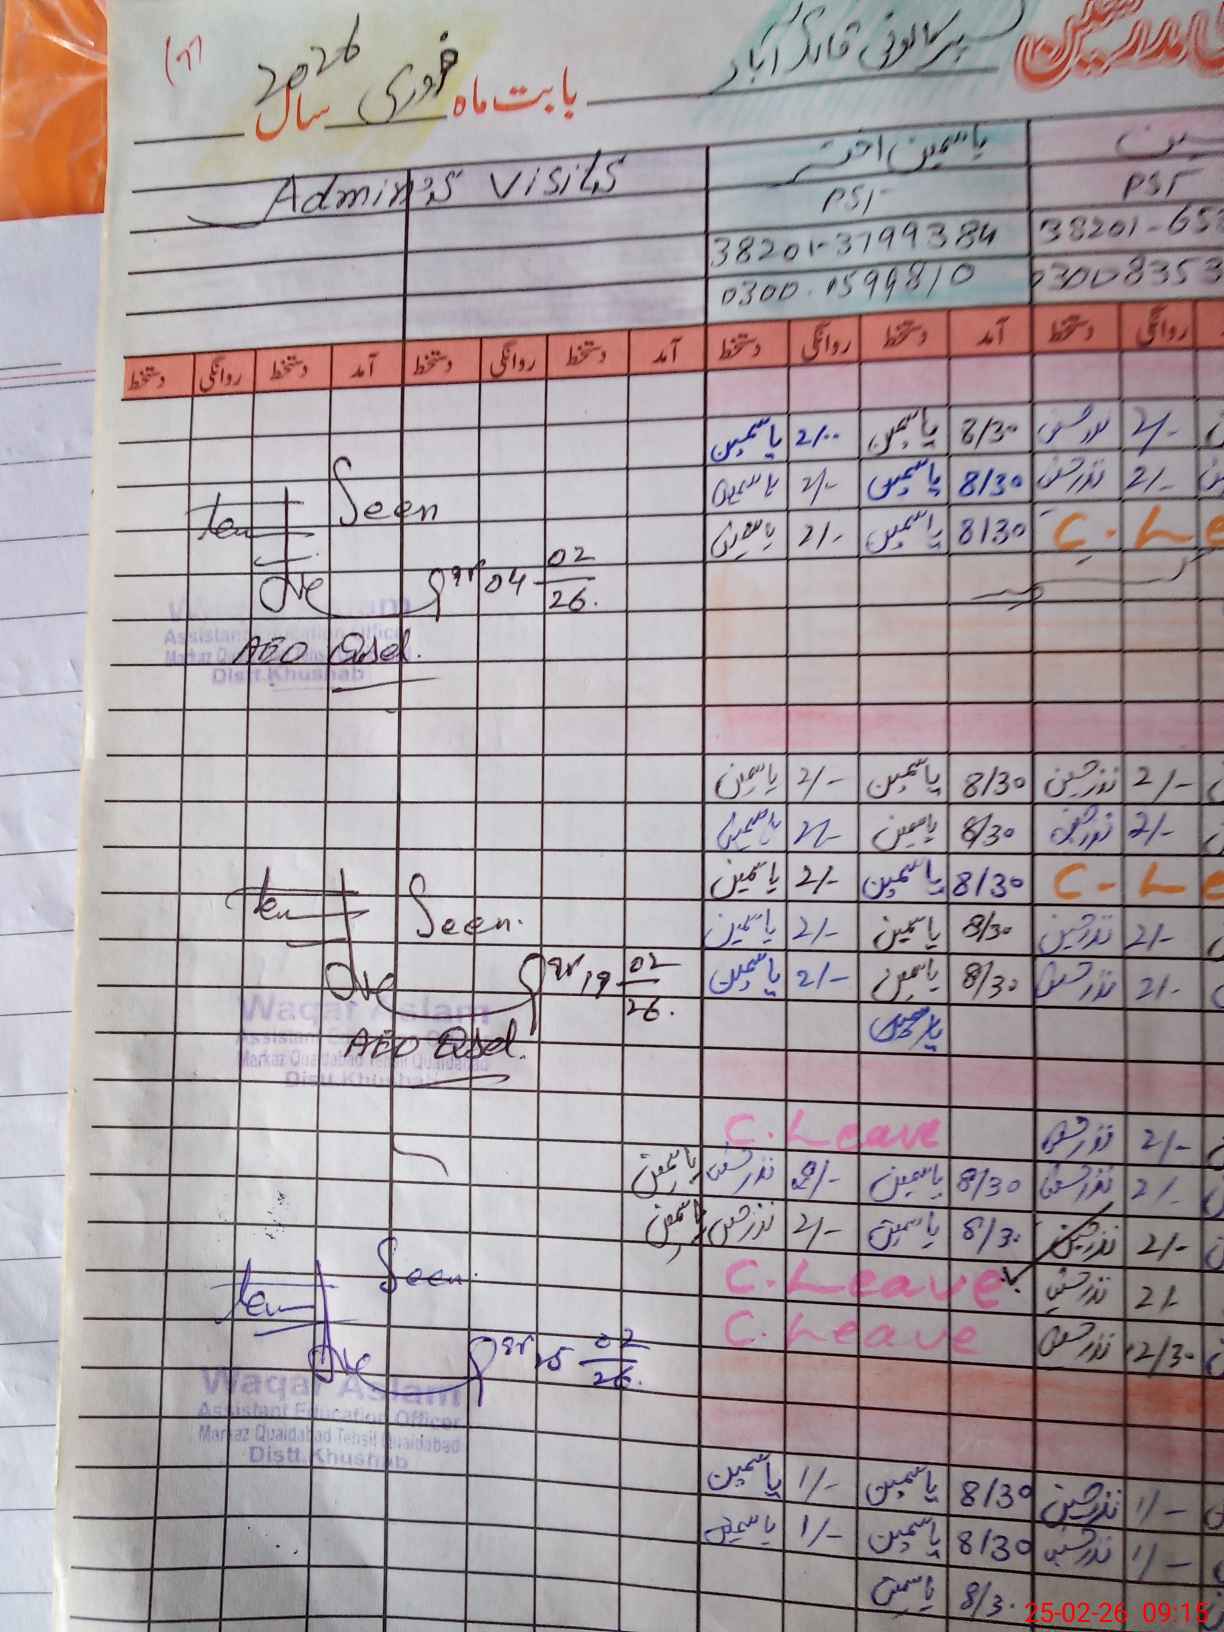 بابت ماہ فروری سال 2026
Admin's visits
یاسمین اختر
PST PST
38201-3799384 38201-65
0300-1599810 03008353
آمد دستخط روانگی دستخط آمد دستخط روانگی دستخط
دستخط روانگی دستخط آمد دستخط روانگی
2/- 8/30 یاسمین 2/.. یاسمین
2/- 8/30 یاسمین 2/- یاسمین
C.Le 8/30 یاسمین 2/- یاسمین
Seen
04-02/26.
Waqar Aslam
Assistant Education Officer
Markaz Quaidabad Tehsil Quaidabad
Distt.Khushab
AEO Qsd.
نذر حسین 2/- 8/30 یاسمین 2/- یاسمین
2/- 8/30 یاسمین 2/- یاسمین
C-Le 8/30 یاسمین 2/- یاسمین
نذر حسین 2/- 8/30 یاسمین 2/- یاسمین
نذر حسین 2/- 8/30 یاسمین 2/- یاسمین
یاسمین
Seen.
19-02/26.
Waqar Aslam
Assistant Education Officer
Markaz Quaidabad Tehsil Quaidabad
Distt.Khushab
AEO Qsd.
نذر حسین 2/- C.Leave
نذر حسین 2/- 8/30 یاسمین 2/- نذر حسین یاسمین
نذر حسین 2/- 8/30 یاسمین 2/- نذر حسین یاسمین
نذر حسین 2/- C.Leave
نذر حسین 12/30 C.Leave
Seen.
25-02/26.
Waqar Aslam
Assistant Education Officer
Markaz Quaidabad Tehsil Quaidabad
Distt.Khushab
نذر حسین 1/- 8/30 یاسمین 1/- یاسمین
نذر حسین 1/- 8/30 یاسمین 1/- یاسمین
8/30 یاسمین
25-02-26 09:15